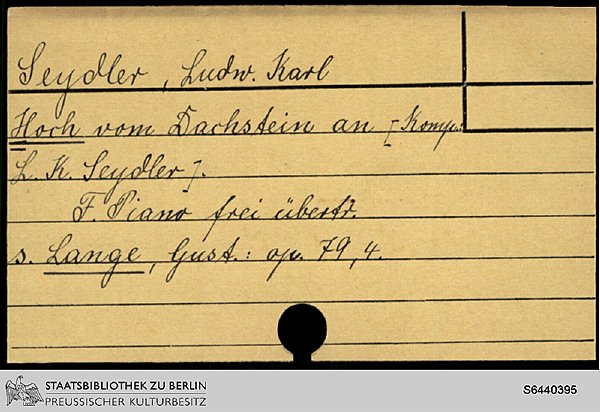 Seydler, Ludw. Karl
Hoch vom Dachstein an [Komp:
L. K. Seydler].
F. Piano frei übertr.
s. Lange, Gust.: op. 79,4.
STAATSBIBLIOTHEK ZU BERLIN
PREUSSISCHER KULTURBESITZ
S6440395